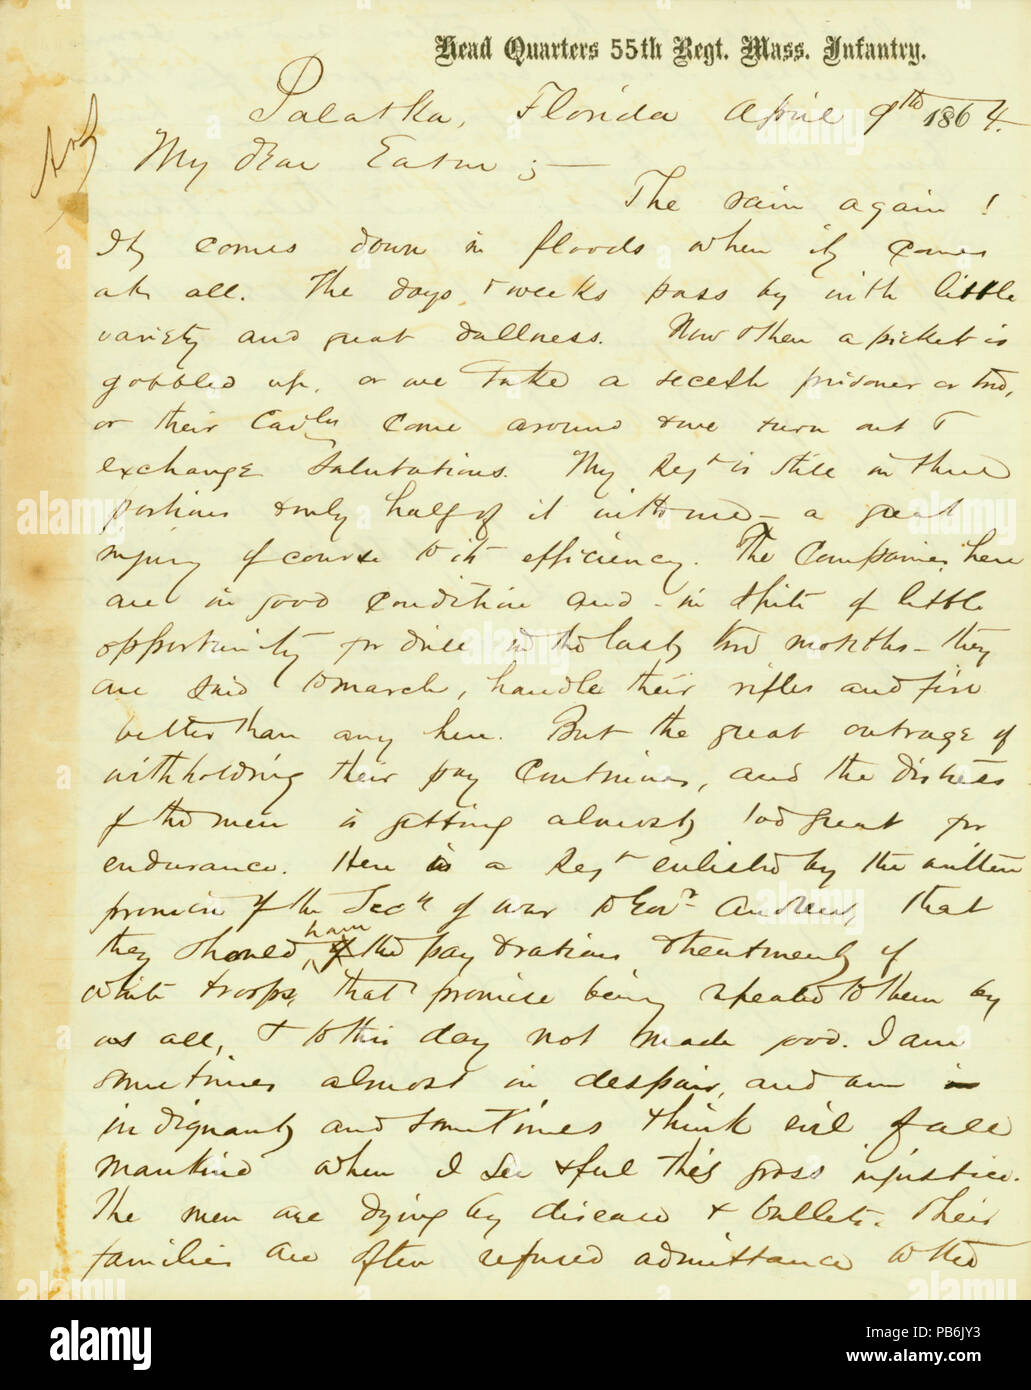 Head Quarters 55th Regt. Mass. Infantry.
Palatka, Florida April 9th 1864.
My dear Eaton ;—
The rain again !
It comes down in floods when it comes
at all. The days & weeks pass by with little
variety and great dullness. Now & then a picket is
gobbled up, or we take a secesh prisoner or two,
or their Cavly come around & we turn out to
exchange salutations. My Regt is still in three
portions & only half of it with me — a great
injury of course to its efficiency. The Companies here
are in good condition and - in spite of little
opportunity for drill in the last two months - they
are said to march, handle their rifles and fire
better than any here. But the great outrage of
withholding their pay continues, and the distress
of the men is getting almost too great for
endurance. Here is a Regt enlisted by the written
promise of the Secy of War to Govr Andrew, that
they should, have the pay & rations & treatment of
white troops, that promise being repeated to them by
us all, & to this day not made good. I am
sometimes almost in despair, and am
indignant and sometimes think evil of all
mankind when I see & feel this gross injustice.
The men are dying by disease & bullets. Their
families are often refused admittance to the
alamy
Image ID: PB6JY3
www.alamy.com